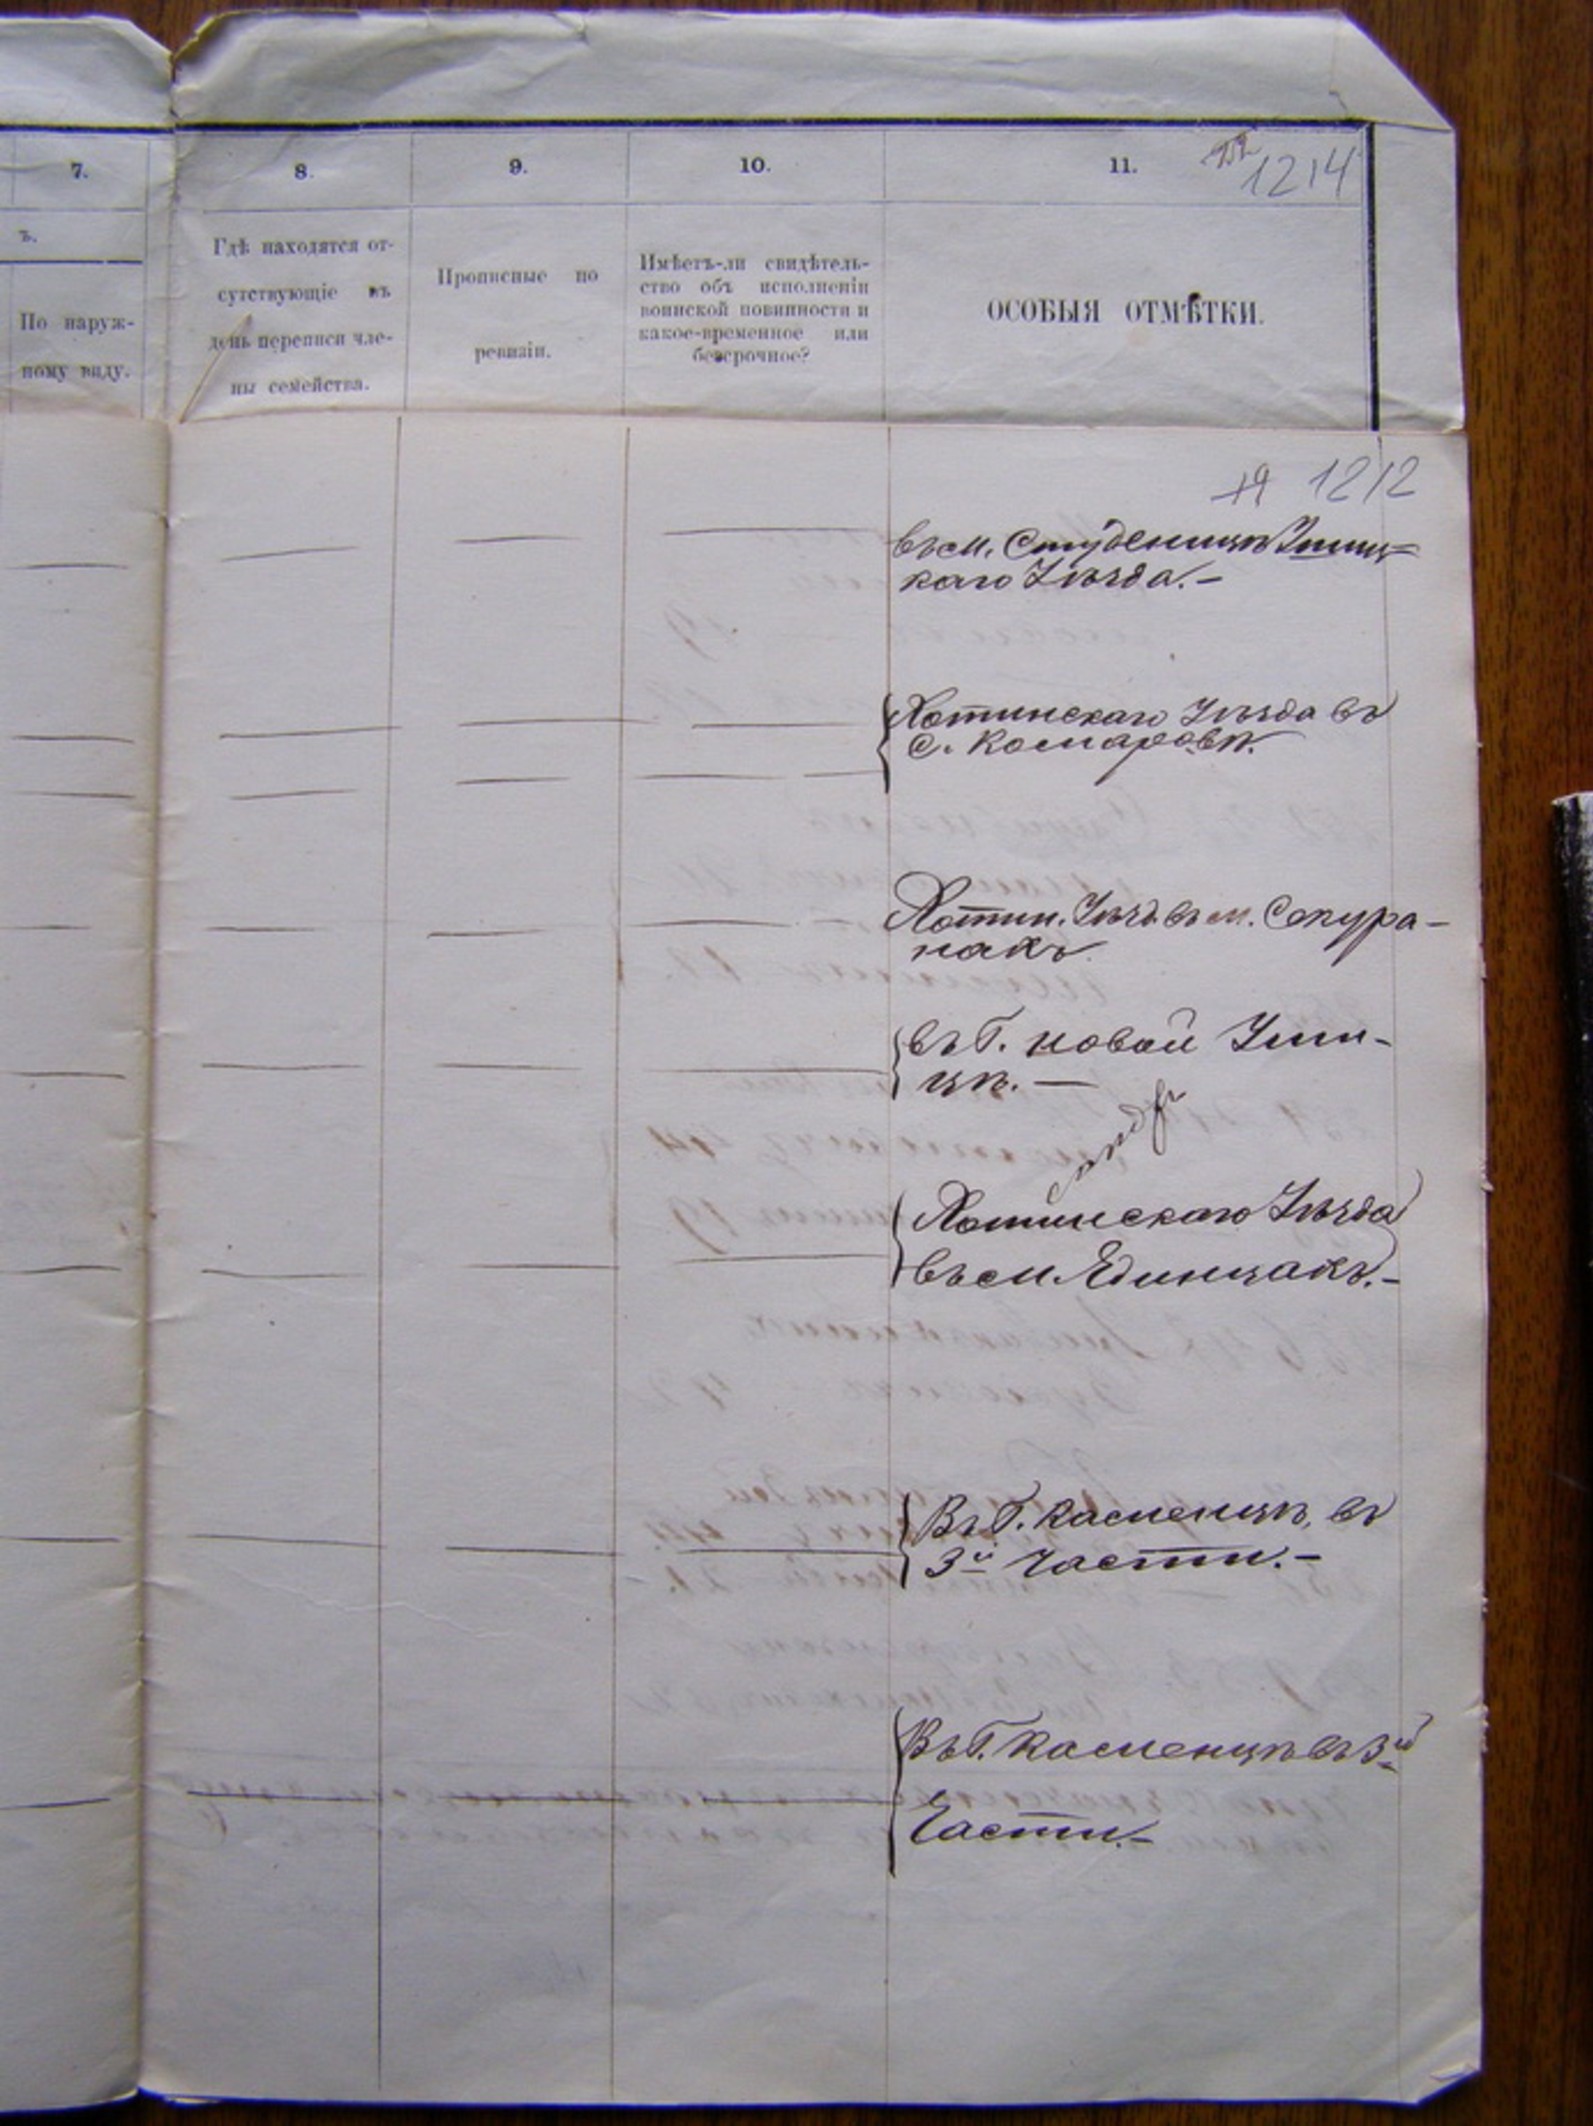 7.
8.
9.
10.
11.
1214
ъ.
По наруж-
ному виду.
Гдѣ находятся от-
сутствующіе въ
день переписи чле-
ны семейства.
Прописные по
ревизіи.
Имѣетъ-ли свидѣтель-
ство объ исполненіи
воинской повинности и
какое-временное или
безсрочное?
ОСОБЫЯ ОТМѢТКИ.
19 1212
въ м. Студеницѣ Ушиц-
каго Уѣзда.-
Хотинскаго Уѣзда въ
с. Комаровѣ.
Хотин. Уѣзд. въ м. Секура-
нахъ
въ Г. Новой Уши-
цѣ. —
Хотинскаго Уѣзда
въ м Единцахъ.-
Въ Г. Каменцѣ, въ
3й части.-
Въ Г. Каменцѣ въ 3й
Части.-